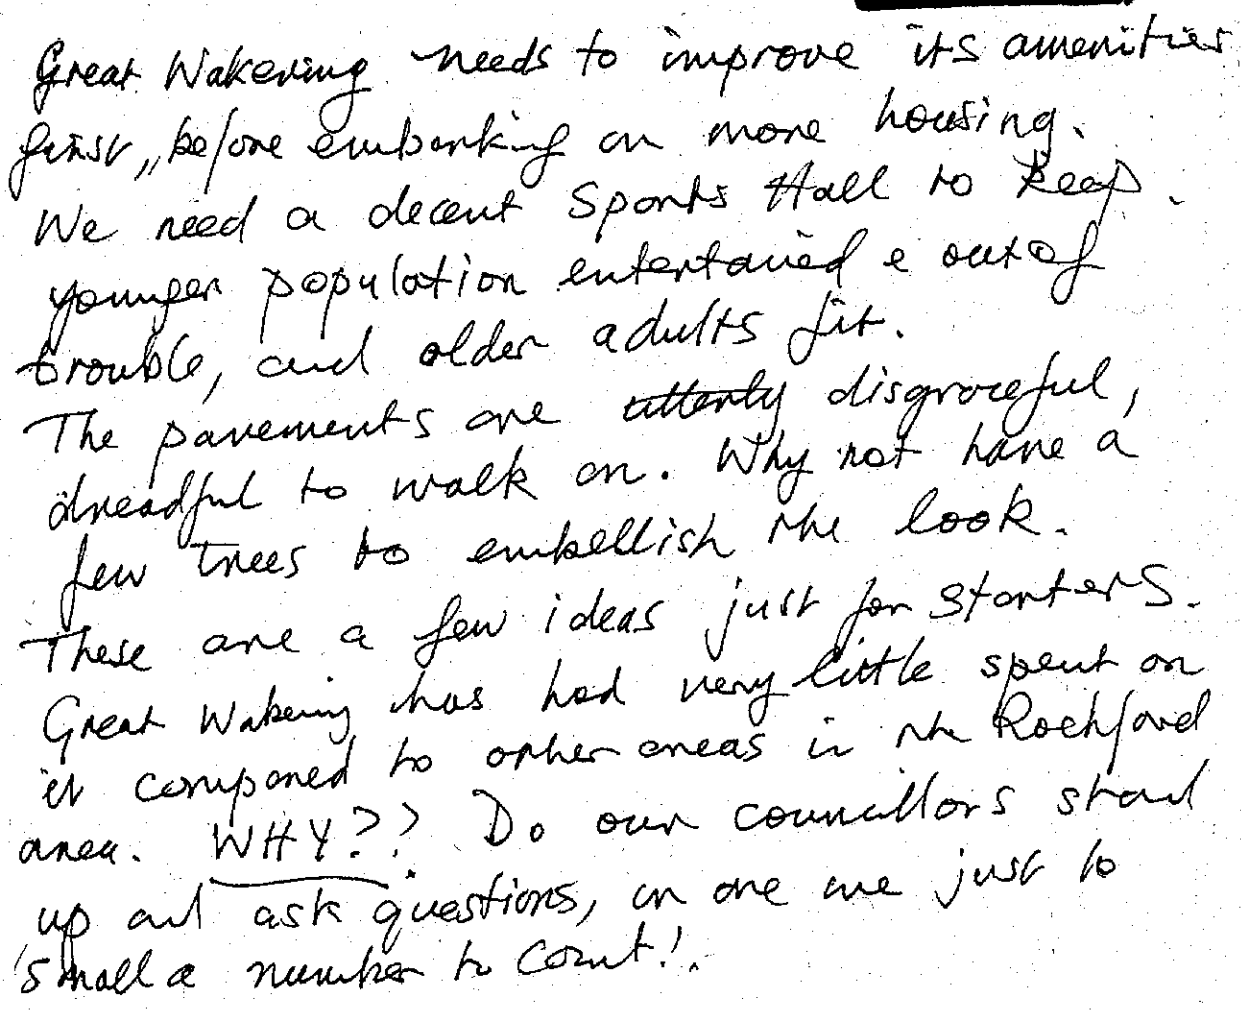 Great Wakering needs to improve its amenities
first, before embarking on more housing.
We need a decent Sports Hall to keep
younger population entertained & out of
trouble, and older adults fit.
The pavements are utterly disgraceful,
dreadful to walk on. Why not have a
few trees to embellish the look.
These are a few ideas just for starters.
Great Wakering has had very little spent on
it compared to other areas in the Rochford
area. WHY?? Do our councillors stand
up and ask questions, or are we just to
small a number to count!.